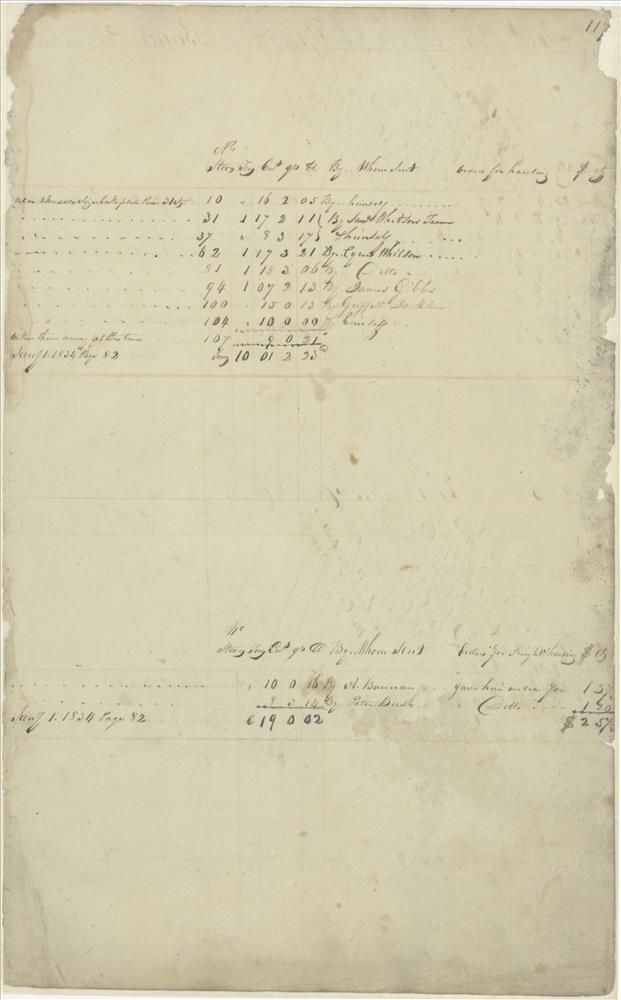 117
No
Ton Cwt qrs lb By Whom Sent Orders for hauling $ cts
10 " 16 2 05 By himself
31 1 17 2 11 By Saml Team
37 " 8 3 17 & himself
62 1 17 3 21 By Cyrus Whitson
81 1 18 3 06 By Ditto
94 1 07 2 13 By James Gibbs
100 " 15 0 13 By Griffith
104 " 10 0 00 By himself
them away at this time 107 9 0 21
Jany 1. 1834 Page 82 Ton 10 01 2 23
No
Ton Cwt qrs lb By Whom Sent Orders for hauling $ cts
" 10 0 16 By A. Bannan gave him for 1 37
8 3 14 By Peter Bush Ditto 1 20
Jany 1. 1834 Page 82 C 19 0 02 $ 2 57